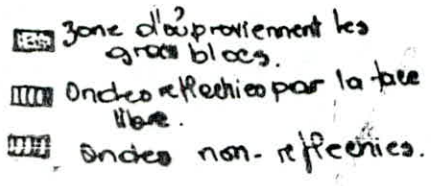 zone d'où proviennent les
gros blocs.
Ondes reflechies par la face
libre.
ondes non-reflechies.